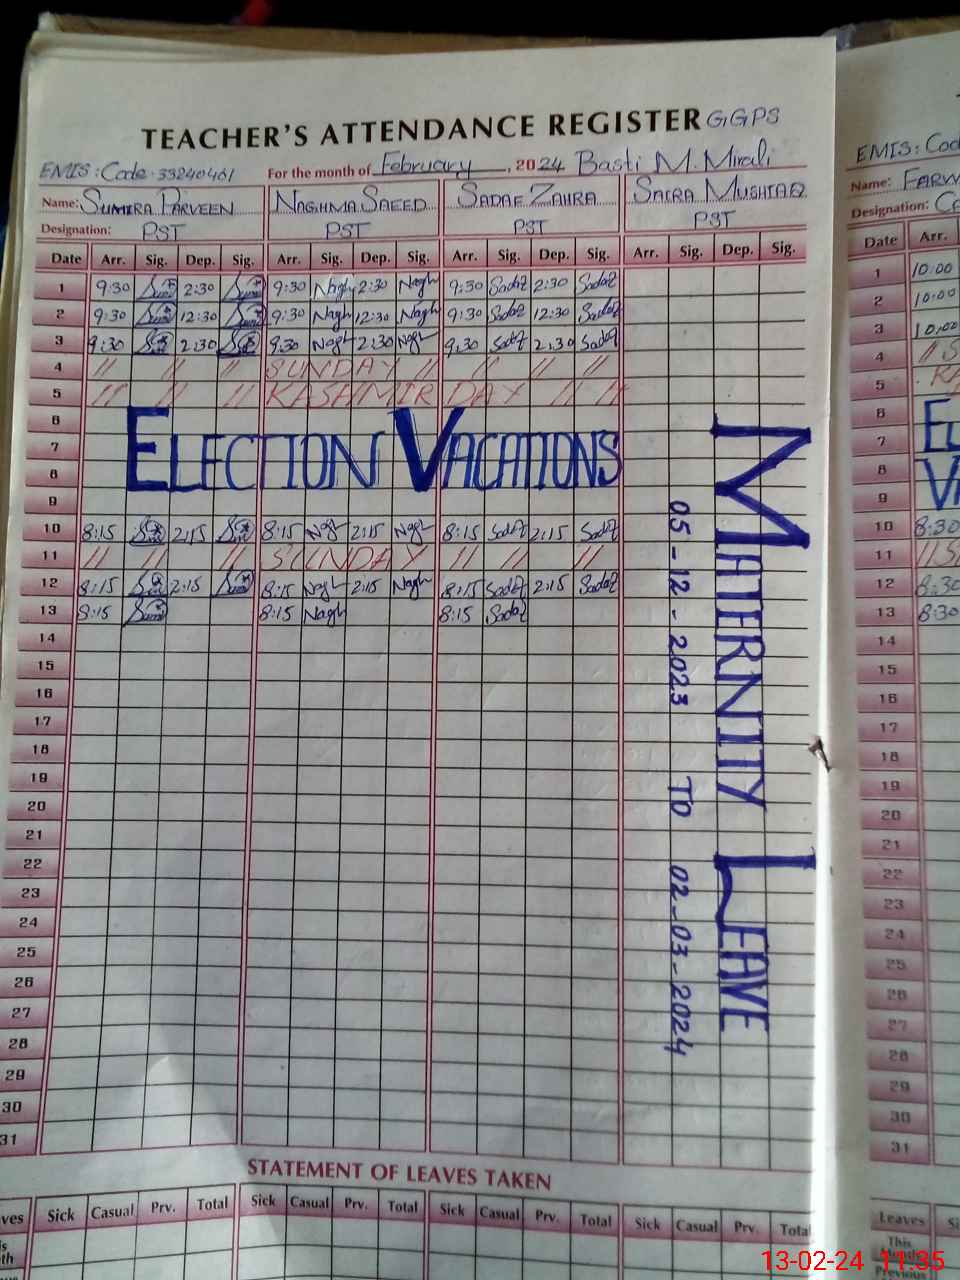 TEACHER'S ATTENDANCE REGISTER G.G.P.S
EMIS: Code. For the month of February, 2024 Basti M. Mirali
Name: SUMIRA PARVEEN NAGHMA SAEED SADAF ZAHRA SAIRA MUSHTAQ
Designation: PST PST PST PST
Date Arr. Sig. Dep. Sig. Arr. Sig. Dep. Sig. Arr. Sig. Dep. Sig. Arr. Sig. Dep. Sig.
1 9:30 2:30 9:30 Nagh 2:30 Nagh 9:30 Sadaf 2:30 Sadaf
2 9:30 12:30 9:30 Nagh 12:30 Nagh 9:30 Sadaf 12:30 Sadaf
3 9:30 2:30 9:30 Nagh 2:30 Nagh 9:30 Sadaf 2:30 Sadaf
4 // // // SUNDAY // // // //
5 // // // KASHMIR DAY // //
6
7 ELECTION VACATIONS
8
9
10 8:15 2:15 8:15 Nagh 2:15 Nagh 8:15 Sadaf 2:15 Sadaf
11 // // // SUNDAY // // //
12 8:15 2:15 8:15 Nagh 2:15 Nagh 8:15 Sadaf 2:15 Sadaf
13 8:15 8:15 Nagh 8:15 Sadaf
14
15
16
17
18
19
20
21
22
23
24
25
26
27
28
29
30
31
MATERNITY LEAVE
05-12-2023 TO 02-03-2024
STATEMENT OF LEAVES TAKEN
Sick Casual Prv. Total Sick Casual Prv. Total Sick Casual Prv. Total Sick Casual Prv. Total
EMIS: Cod
Name: FARW
Designation:
Date Arr.
1 10:00
2 10:00
3 10:00
4 // S
5
6 EL
7
8 V
9
10 8:30
11 // S
12 8:30
13 8:30
14
15
16
17
18
19
20
21
22
23
24
25
26
27
28
29
30
31
Leaves
This
Month
Previous
13-02-24 11:35